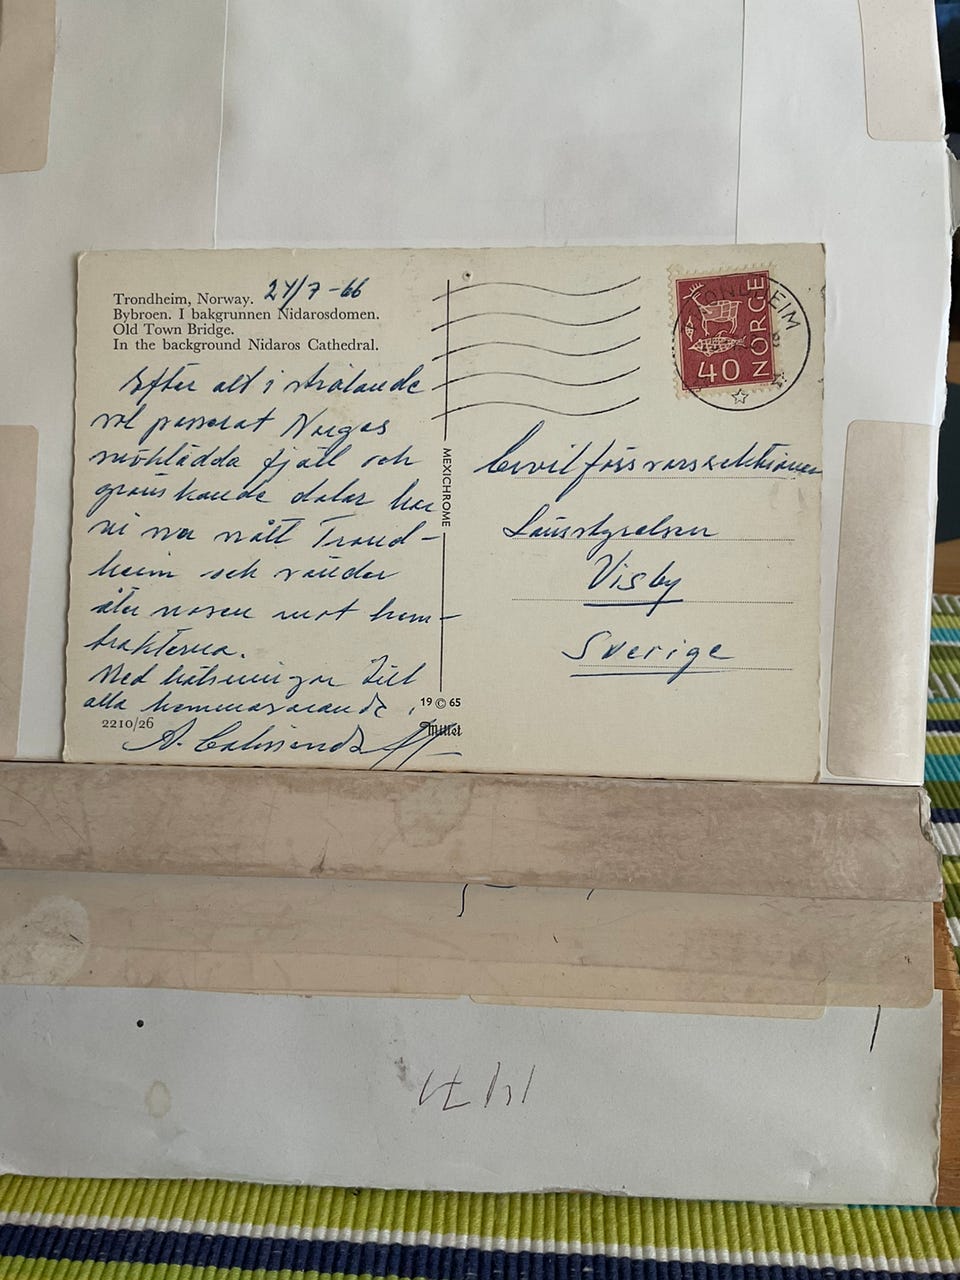 Trondheim, Norway. 27/7-66
Bybroen. I bakgrunnen Nidarosdomen.
Old Town Bridge.
In the background Nidaros Cathedral.
Efter att i strålande
sol passerat Norges
snöklädda fjäll och
grönskande dalar har
vi nu nått Trond-
heim och vänder
åter nosen mot hem-
trakterna.
Med hälsningar till
alla hemmavarande.
2210/26
A.
MEXICHROME
19 © 65
Mittet
TRONDHEIM
NORGE
40
Civilförsvarssektionen
Länsstyrelsen
Visby
Sverige